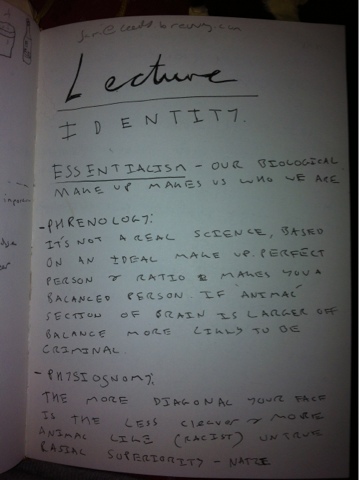 Lecture
IDENTITY.
ESSENTIALISM - OUR BIOLOGICAL
MAKE UP MAKES US WHO WE ARE
- PHRENOLOGY:
IT'S NOT A REAL SCIENCE, BASED
ON AN IDEAL MAKE UP. PERFECT
PERSON & RATIO MAKES YOU A
BALANCED PERSON. IF ANIMAL
SECTION OF BRAIN IS LARGER OFF
BALANCE MORE LIKLY TO BE
CRIMINAL.
- PHYSIOGNOMY:
THE MORE DIAGONAL YOUR FACE
IS THE LESS CLEVER & MORE
ANIMAL LIKE (RACIST) UNTRUE
RASIAL SUPERIORITY - NATZE